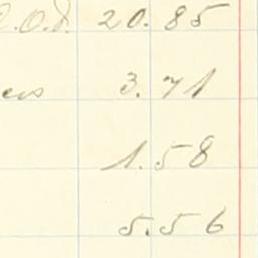 C.O.D. 20.85
3.71
1.58
5.56